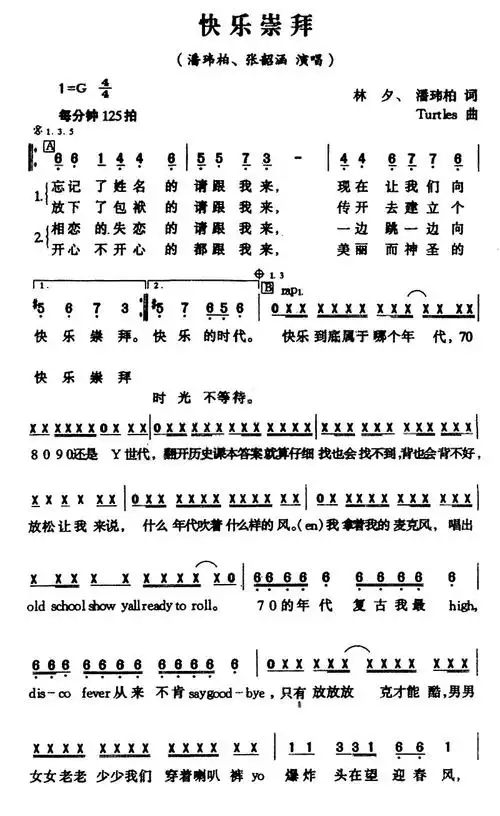 快乐崇拜
(潘玮柏、张韶涵 演唱)
1=G 4/4
林 夕、潘玮柏 词
每分钟125拍
Turtles 曲
1.3.5
A
6 6 1 4 4 6 | 5 5 7 3 - | 4 4 6 7 7 6 |
1. 忘记 了姓名 的 请跟 我来, 现在 让我们向
放下 了包袱 的 请跟 我来, 传开 去建立个
2. 相恋 的失恋 的 请跟 我来, 一边 跳一边向
开心 不开心 的 都跟 我来, 美丽 而神圣的
1.3
1. 2. B rap1.
#5 6 7 3 :| #5 6 7 6 5 6 | 0 X X X X X X X X X X X X X
快 乐 崇 拜。 快 乐 的时代。 快乐 到底属于 哪个年 代,70
快 乐 崇 拜
时 光 不等待。
X X X X X X 0 X X | X 0 X X X X X X X X X X X X | X X X X X X X X X X X X X X X
8090还是 Y世代, 翻开历史课本答案就算仔细 找也会找不到,背也会背不好,
X X X X X X | X X X X X X X X X X X 0 X | X X X X X X X X X X
放松让我 来说, 什么 年代吹着 什么样的 风。(en)我 拿着我的 麦克风, 唱出
X X X X X X X X X X 0 | 6 6 6 6 6 6 6 6 6
old school show yall ready to roll。 70的年代 复古我最 high,
6 6 6 6 6 6 6 6 6 6 6 6 | 0 X X X X X X X X X X X X
dis-co fever从来 不肯saygood-bye,只有 放放放 克才能 酷,男男
X X X X X X X X X X X X X X | 1 1 3 3 1 6 6 1
女女老老 少少我们 穿着喇叭 裤yo 爆炸 头在望 迎春 风,